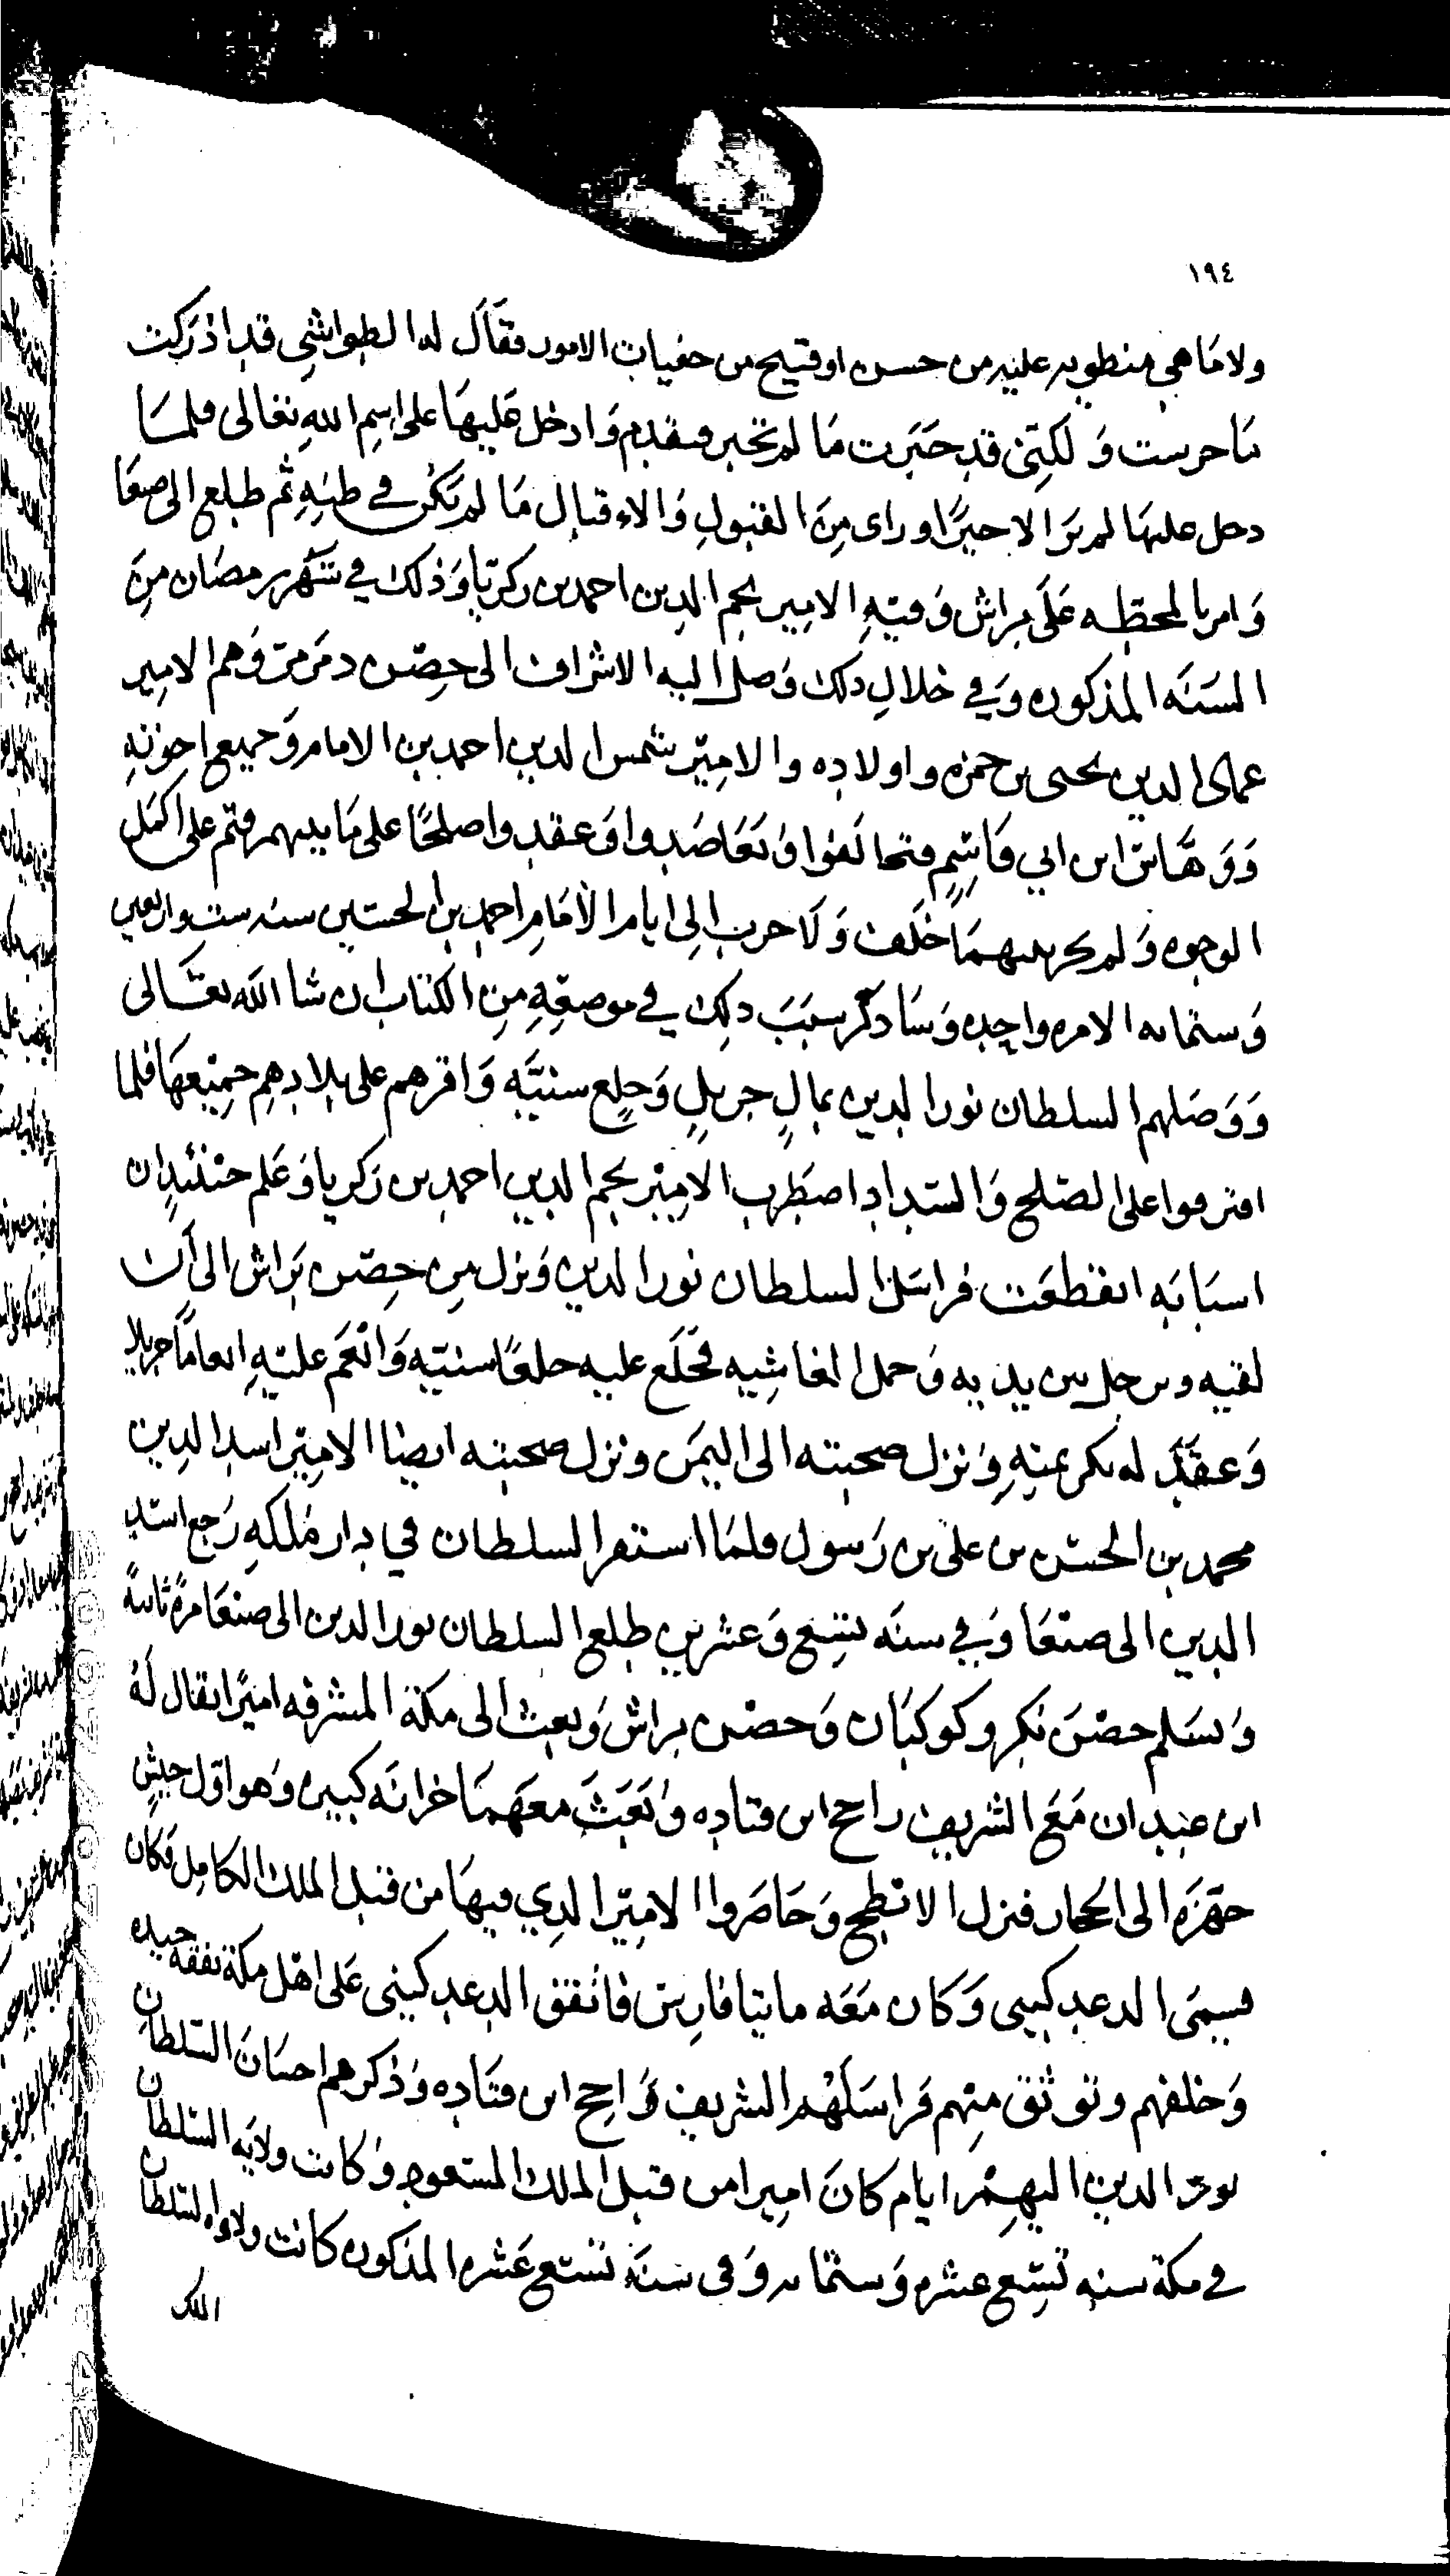 ١٩٤
ولا ما هي منطويه عليه من حسن او قبيح من خفيات الامور فقال له الطواشي قد ادركت
ما حرست ولكني قد خبرت ما لم تخبر فتقدم وادخل عليها على اسم الله تعالى فلما
دخل عليها لم ير الا خيرا وراى من القبول والاقبال ما لم يكن في ظنه ثم طلع الى صنعا
وامر بالمحطه على براش وفيه الامير نجم الدين احمد بن زكريا وذلك في شهر رمضان من
السنه المذكوره وفي خلال ذلك وصل اليه الاشراف الى حصن ذمرمر وهم الامير
عماد الدين يحيى بن حمزه واولاده والامير شمس الدين احمد بن الامام وجميع اخوته
ووهاس ابن ابي هاشم فتحالفوا وتعاضدوا وعقدوا صلحا على ما بينهم وتم على اكمل
الوجوه ولم يجر بينهما خلف ولا حرب الى ايام الامام احمد بن الحسين سنه ست واربعين
وستمائه الا مره واحده وساذكر سبب ذلك في موضعه من الكتاب ان شا الله تعالى
ووصلهم السلطان نور الدين بمال جزيل وخلع سنيه واقرهم على بلادهم جميعها فلما
افترقوا على الصلح والسداد اضطرب الامير نجم الدين احمد بن زكريا وعلم حينئذ ان
اسبابه انقطعت فراسل السلطان نور الدين ونزل من حصن براش الى ان
لقيه وترجل بين يديه وحمل الغاشيه فخلع عليه خلعا سنيه وانعم عليه انعاما جزيلا
وعقد له بكريمته ونزل صحبته الى اليمن ونزل صحبته ايضا الامير اسد الدين
محمد بن الحسن بن علي بن رسول فلما استقر السلطان في دار ملكه رجع اسد
الدين الى صنعا وفي سنه تسع وعشرين طلع السلطان نور الدين الى صنعا مرة ثانية
وتسلم حصن بكر وكوكبان وحصن براش وبعث الى مكة المشرفه اميرا يقال له
ابن عبدان مع الشريف راجح ابن قتاده وبعث معهما خزانه كبيره وهو اول جيش
جهزه الى الحجاز فنزل الابطح وحاصروا الامير الذي فيها من قبل الملك الكامل وكان
يسمى الدعدكيني وكان معه مايتا فارس فانفق الدعدكيني على اهل مكة نفقه جيده
وحلفهم وتوثق منهم فراسلهم الشريف راجح ابن قتاده وذكرهم احسان السلطان
نور الدين اليهم ايام كان اميرا من قبل الملك المسعود وكانت ولايه السلطان
في مكة سنه تسع عشره وستمايه وفي سنه تسع عشره المذكوره كانت السلطان
الملك